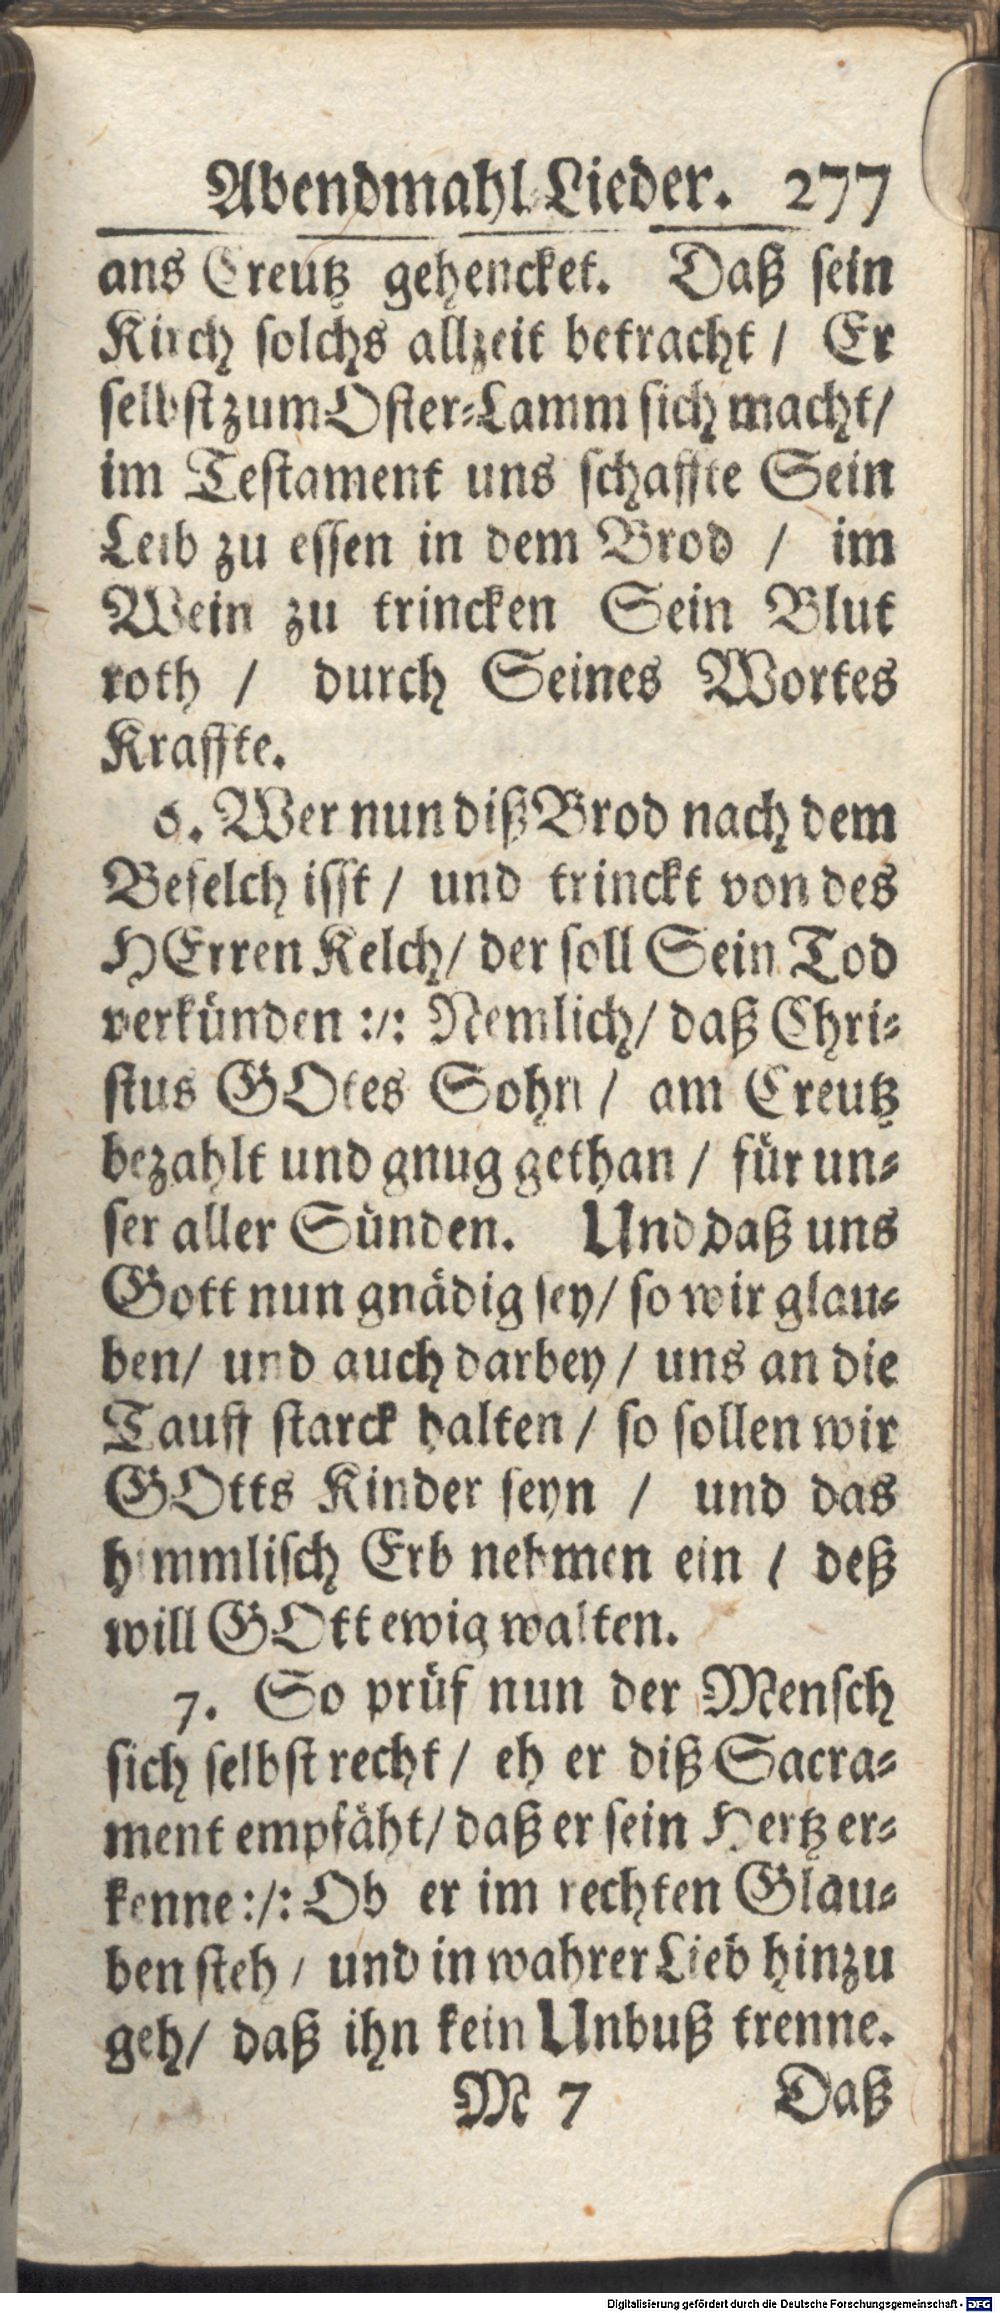 Abendmahl-Lieder. 277
ans Creutz gehencket. Daß sein
Kirch solchs allzeit betracht / Er
selbst zum Oster-Lamm sich macht/
im Testament uns schaffte Sein
Leib zu essen in dem Brod / im
Wein zu trincken Sein Blut
roth / durch Seines Wortes
Kraffte.
6. Wer nun diß Brod nach dem
Befelch isst / und trinckt von des
HErren Kelch/ der soll Sein Tod
verkünden :/: Nemlich/ daß Chri-
stus GOtes Sohn / am Creutz
bezahlt und gnug gethan / für un-
ser aller Sünden. Und daß uns
Gott nun gnädig sey/ so wir glau-
ben/ und auch darbey / uns an die
Tauff starck halten / so sollen wir
GOtts Kinder seyn / und das
himmlisch Erb nehmen ein / deß
will GOtt ewig walten.
7. So prüf nun der Mensch
sich selbst recht / eh er diß Sacra-
ment empfäht/ daß er sein Hertz er-
kenne :/: Ob er im rechten Glau-
ben steh / und in wahrer Lieb hinzu
geh/ daß ihn kein Unbuß trenne.
M 7 Daß
Digitalisierung gefördert durch die Deutsche Forschungsgemeinschaft - DFG